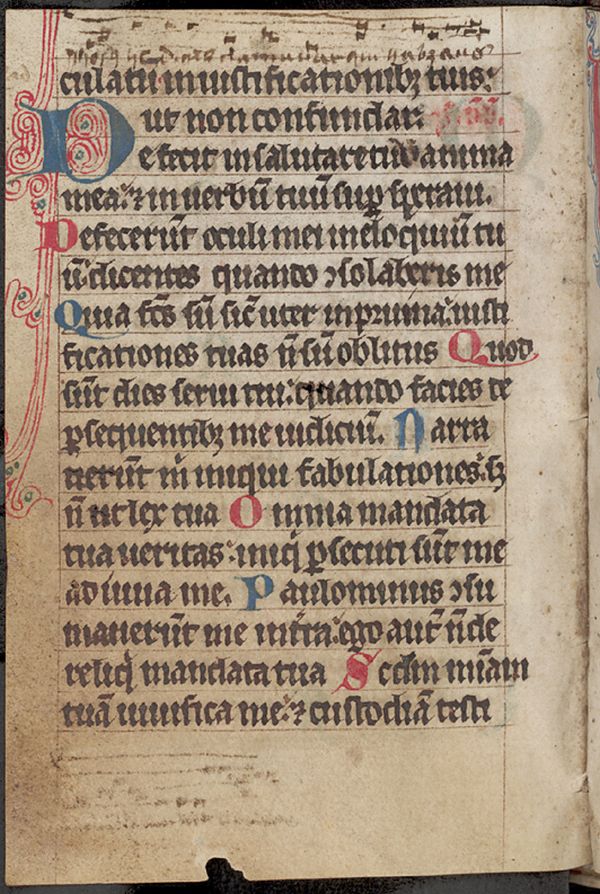 culatū in iustificationibꝫ tuis:
ut non confundar:
Defecit in salutare tuū anima
mea: ⁊ in uerbū tuū suꝑ speraui.
Defecerūt oculi mei in eloquiū tu
ū: dicentes quando ɔsolaberis me
Quia fcs̄ sū sic̄ uter in pruina: iusti
ficationes tuas n̄ sū oblitus Quod
sūt dies serui tui: quando facies de
ꝑsequentibꝫ me iudiciū. Narra
uerūt m̄ iniqui fabulationes: sꝫ
n̄ ut lex tua Omnia mandata
tua ueritas: iniq̄ ꝑsecuti sūt me
adiuua me. Paulominus ɔsu
mauerūt me in tr̄a: ego aut̄ n̄ de
reliq̄ mandata tua Scdm mīam
tuā uiuifica me: ⁊ custodiā testi